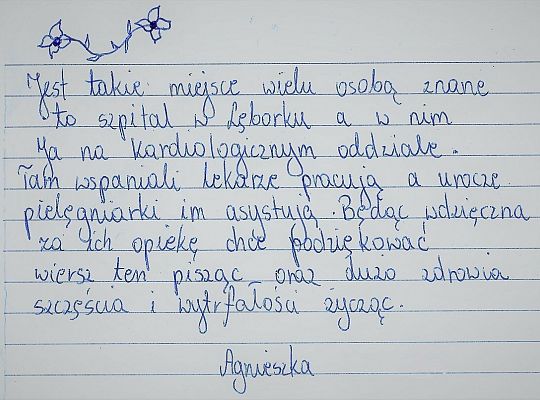 Jest takie miejsce wielu osobą znane
to szpital w Lęborku a w nim
Ja na kardiologicznym oddziale.
Tam wspaniali lekarze pracują a urocze
pielęgniarki im asystują. Będąc wdzięczna
za ich opiekę chce podziękować
wiersz ten pisząc oraz dużo zdrowia
szczęścia i wytrfałości życząc.
Agnieszka